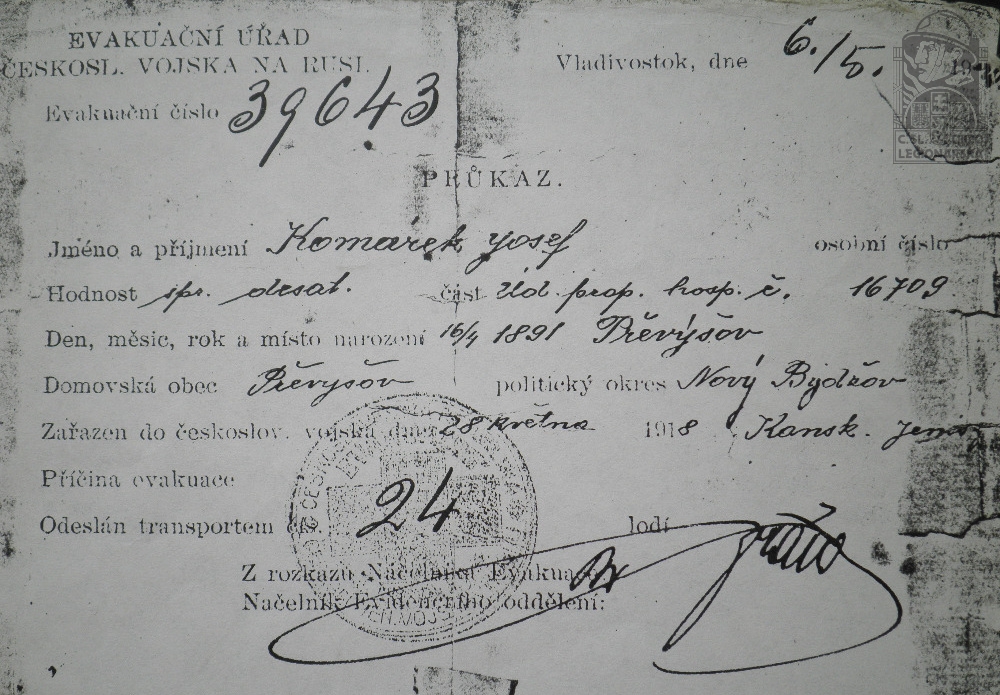 EVAKUAČNÍ ÚŘAD
ČESKOSL. VOJSKA NA RUSI.
Vladivostok, dne 6./5. 19
Evakuační číslo 39643
PRŮKAZ.
Jméno a příjmení Komárek Josef osobní číslo
Hodnost spr. desat. část Úd. prap. hosp. č. 16709
Den, měsíc, rok a místo narození 16/4 1891 Převýšov
Domovská obec Převyšov politický okres Nový Bydžov
Zařazen do českoslov. vojska dne 28 května 1918 Kansk. Jenis
Příčina evakuace
Odeslán transportem čís. 24 lodí
Z rozkazu Náčelníka Evakua
Náčelník Evidenčního oddělení: